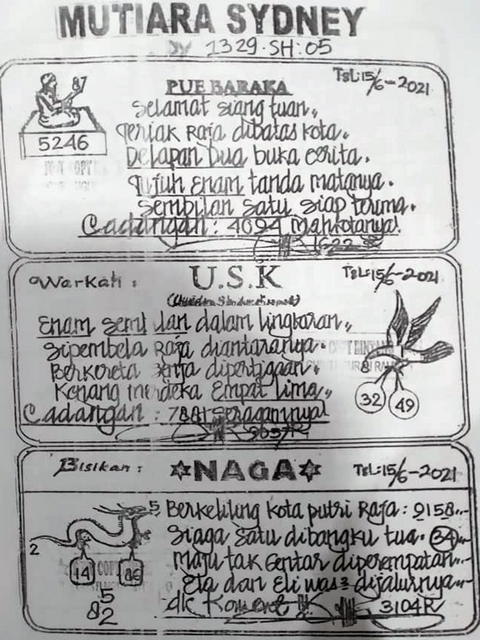 MUTIARA SYDNEY
1329·SH:05
87
5246
PUE BARAKA
TGL:15/6-2021
Selamat siang tuan,,
Teriak Raja dibatas kota.
Delapan Dua buka cerita.
Tujuh Enam tanda matanya.
Sembilan Satu siap terima.
Cadangan : 4094 mahkotanya!
Warkah :
U.S.K
TGL:15/6-2021
Enam Sembilan dalam lingkaran,,
Sipembela Raja diantaranya.
Berkereta senja dipertigaan.
Kenang merdeka Empat Lima,,
Cadangan : 7881 seragamnya!
8
32 49
Bisikan :
NAGA
TGL:15/6-2021
5
2
14 86
5
82
Berkeliling kota putri Raja : 0158...
Siaga satu dibangku tua. 34
Maju tak gentar diperempatan
Eta dan Eli was² dijalurnya
3104R